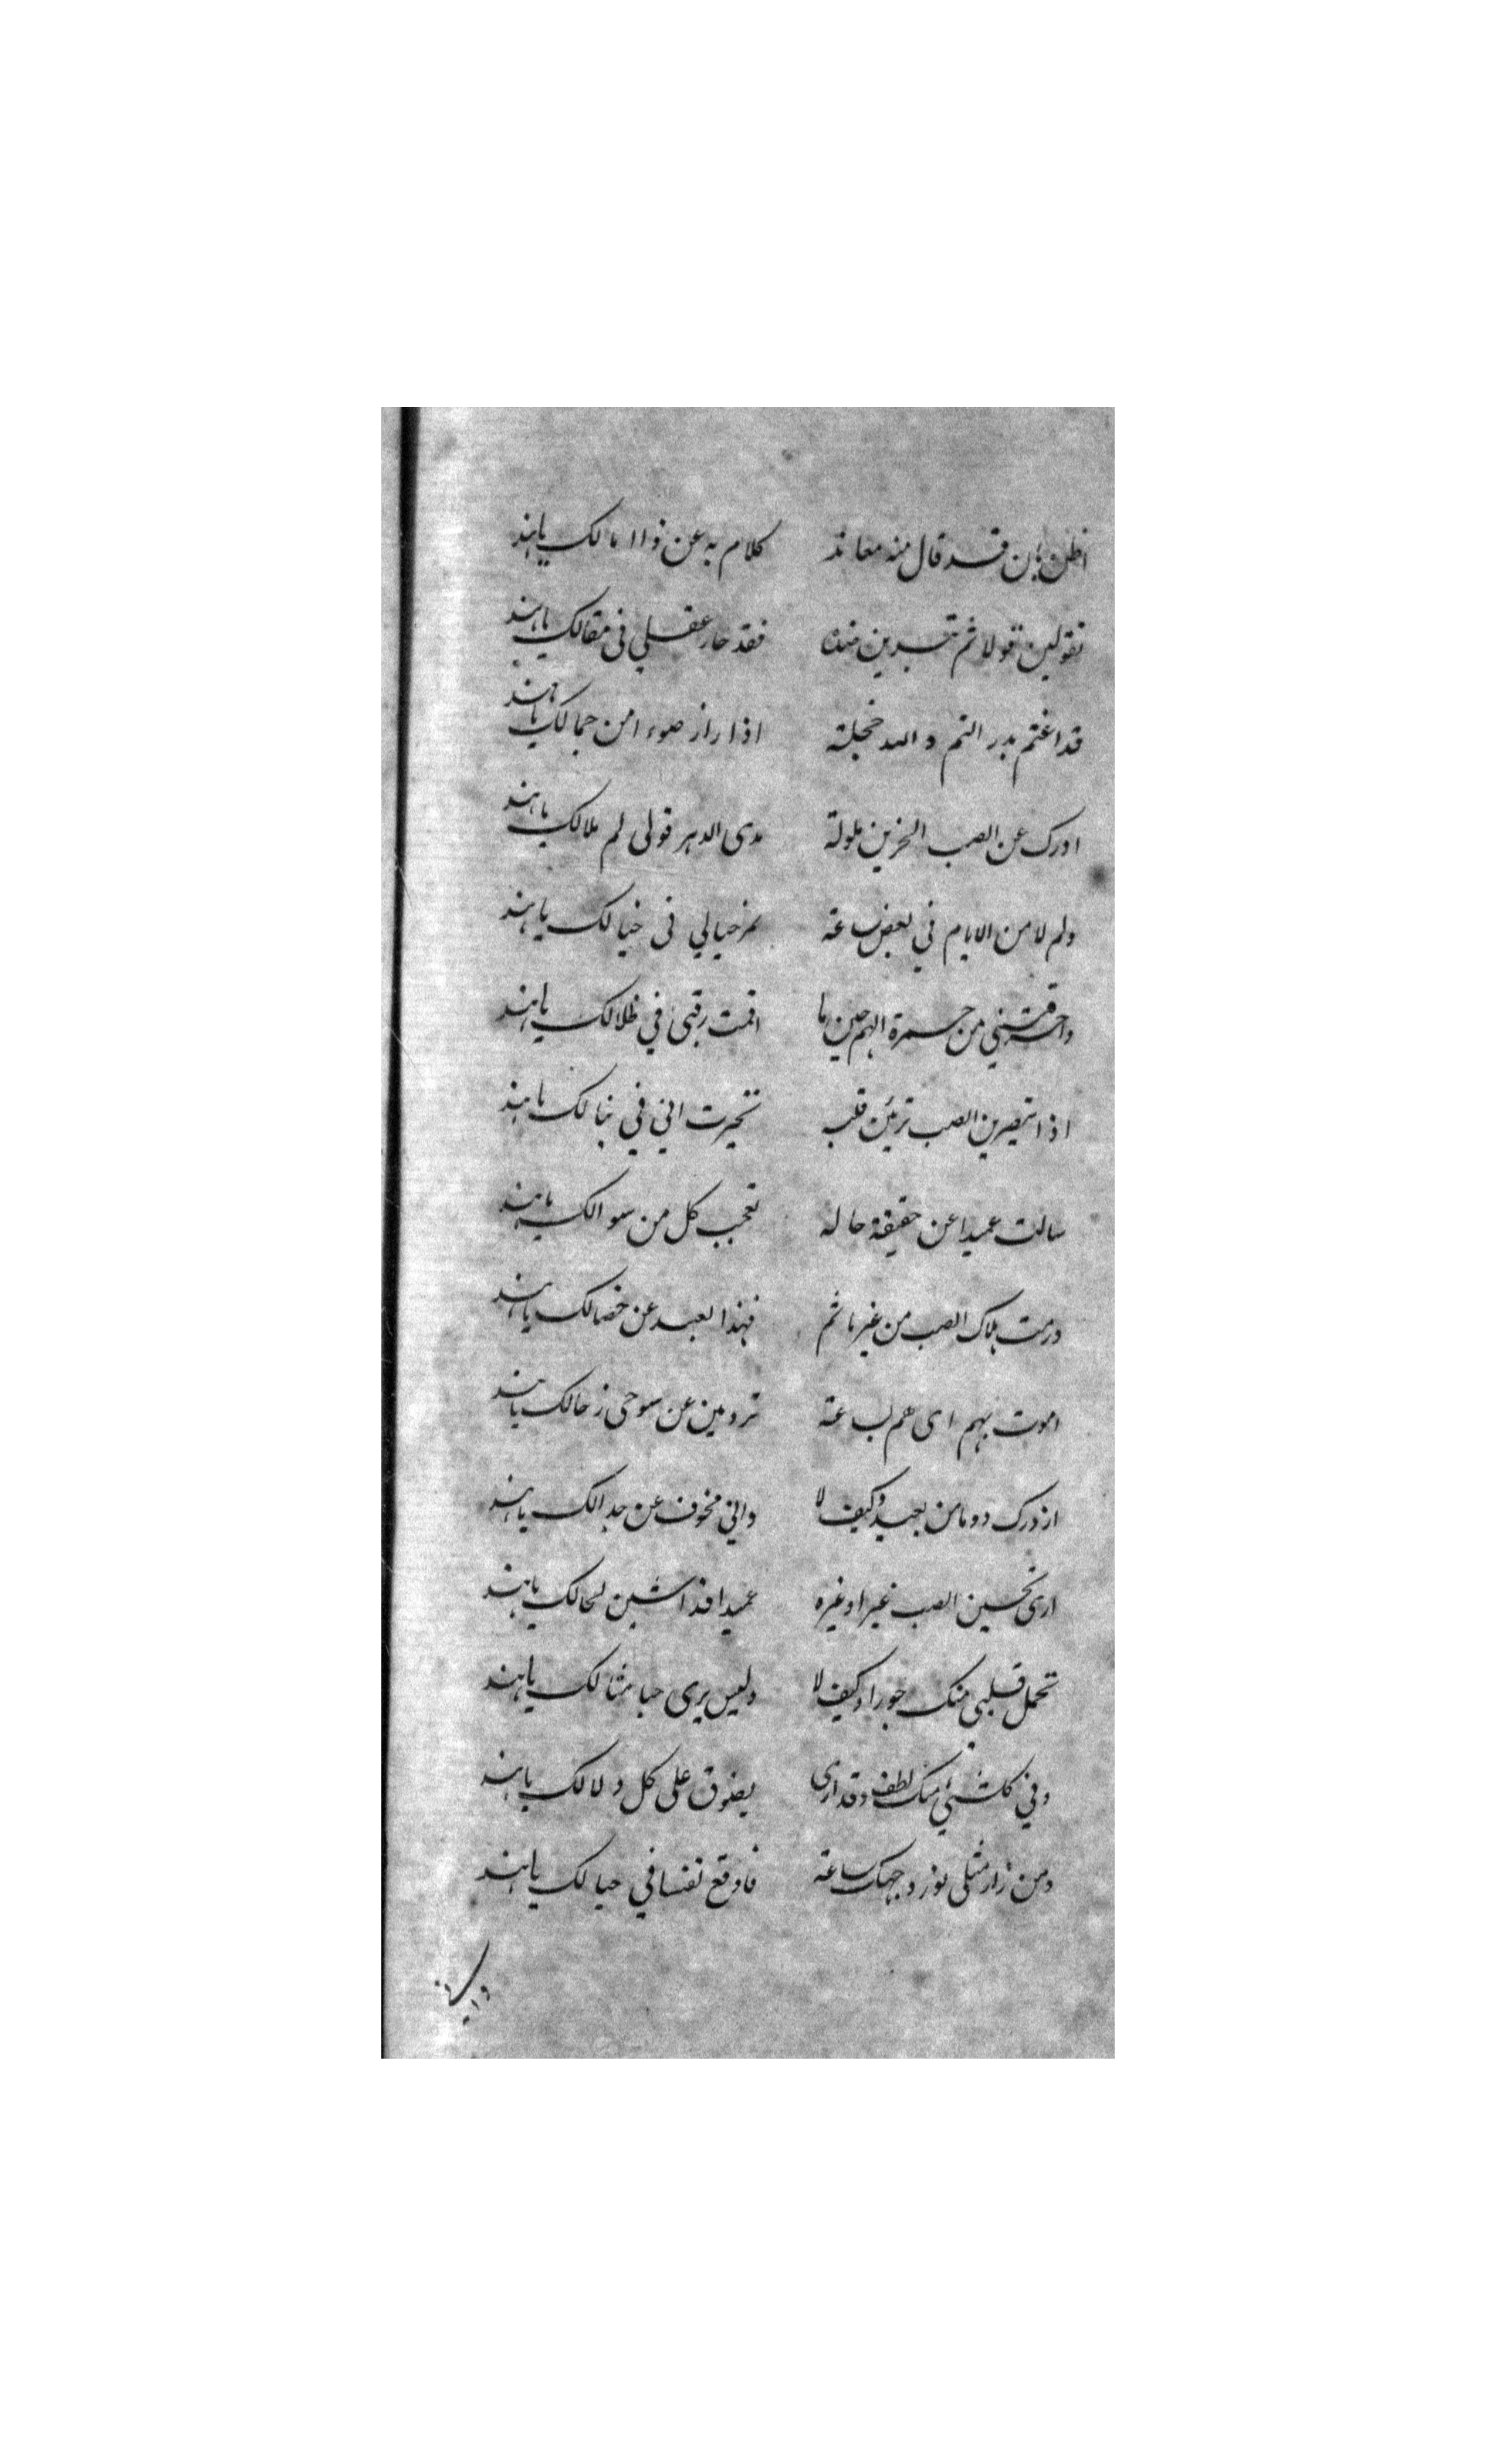 اظن بان قد قال منه معاند كلام به عن ذا مالك ياهند
تقولين قولا ثم تبدين ضده فقد حار عقلي فى مقالك ياهند
قد اغتم بدر التم والله خجلة اذا راز ضوءا من جمالك ياهند
ادرك عن الصب الحزين ملولة مدى الدهر قولى لم ملالك ياهند
ولم لا من الايام في بعض ساعة يمر خيالي فى خيالك ياهند
واحرقتني من جمرة الهم حين ما اقمت رقيبى في ظلالك ياهند
اذا تبصرين الصب ترمين قلبه تحيرت اني في نبالك ياهند
سالت عميدا عن حقيقة حاله تعجب كل من سوالك ياهند
ورمت هلاك الصب من غير ماثم فهذا لعبد عن خصالك ياهند
اموت بهم اى هم بساعة ترومين عن سوحى زحالك ياهند
ازورك دوما من بعيد وكيف لا واني مخوف عن جدالك ياهند
ارى تحسبين الصب غيرا وغيره عميدا فذا شين لحالك ياهند
تحمل قلبي منك جورا وكيف لا وليس يرى حبا مثالك ياهند
وفي كل شئ منك لطف وقد ارى يفوق على كل دلالك ياهند
ومن زار مثلى نور وجهك ساعة فاوقع نفسا في حبالك ياهند